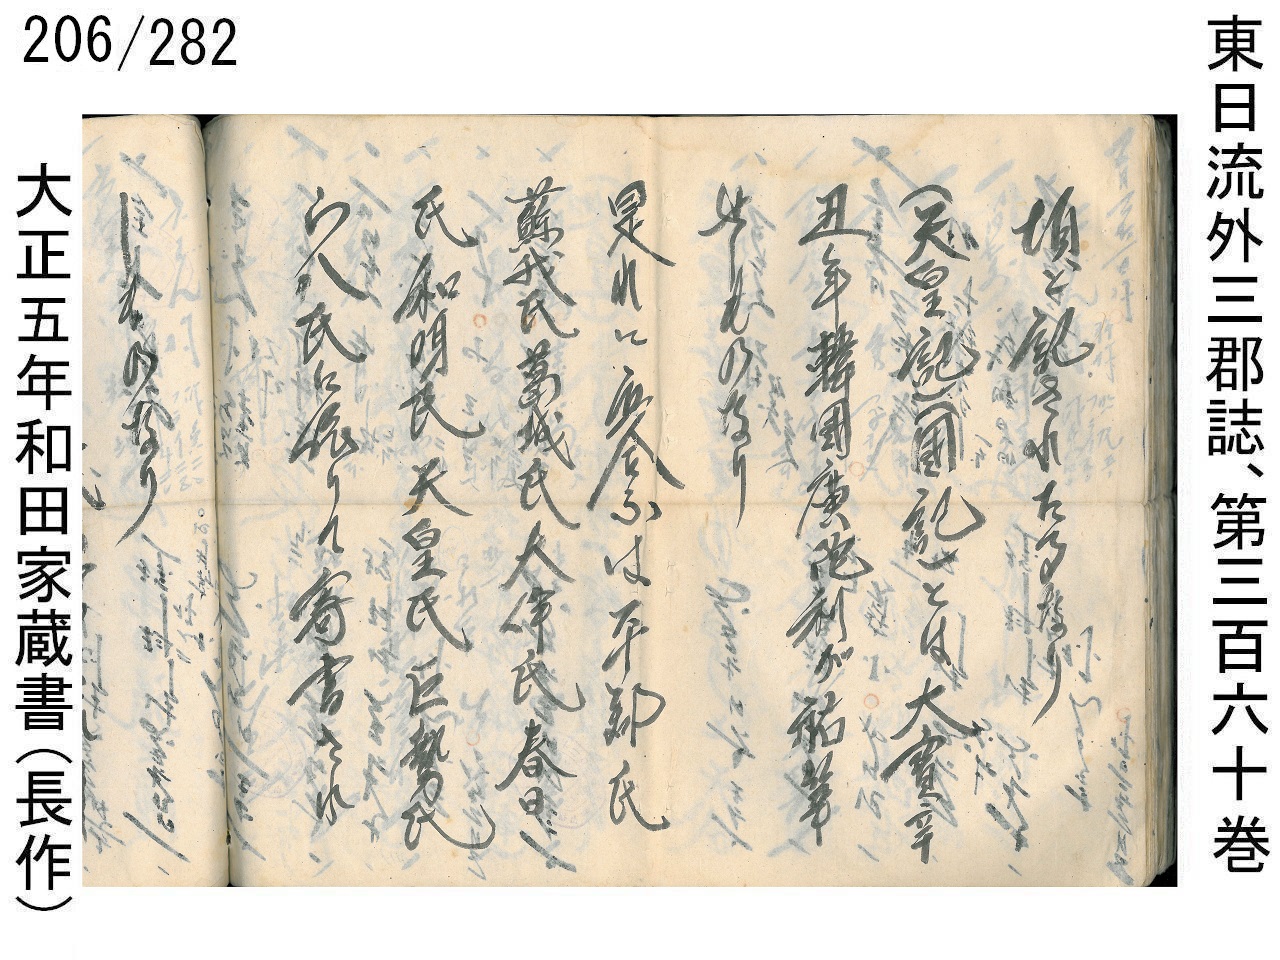 206/282
東日流外三郡誌、第三百六十巻
頃と記されたるなり
天皇記國記とは大寶辛
丑年韓國廣陀利が祐筆
せしものなり
是れに
は平郡氏
蘇我氏葛城氏大伴氏春日
氏和明氏天皇氏巨勢氏
八氏に依りて寄書され
しものなり
大正五年和田家蔵書(長作)